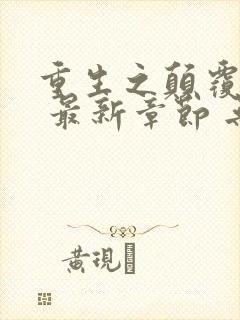 重生之顛覆
最新章節
黃現